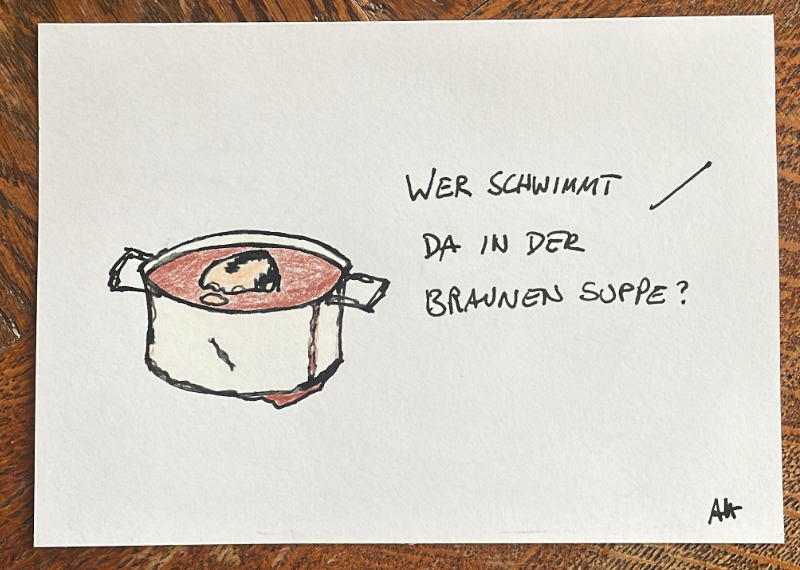 WER SCHWIMMT
DA IN DER
BRAUNEN SUPPE?